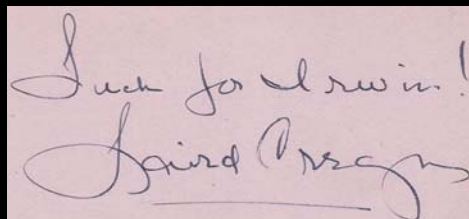 Luck for Irwin!
Laird Cregar